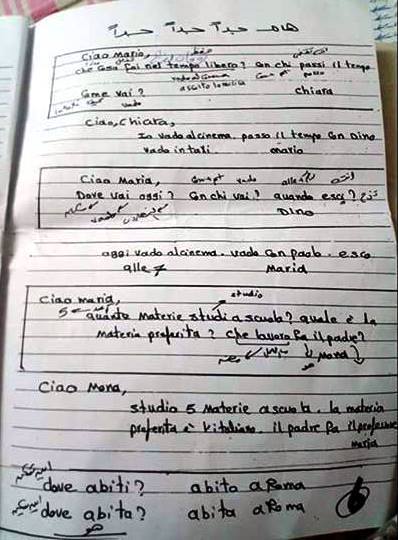 هام جداً جداً جداً
Ciao Maria,
che cosa fai nel tempo libero? Con chi passi il tempo
vado al cinema
Come vai? chiara
vado
Ciao, Chiara,
Io vado al cinema. passo il tempo Con Dino
vado in taxi. maria
Ciao Maria, vado alle
Dove vai oggi? Con chi vai? quando esci?
Dino
oggi vado al cinema. vado Con paolo. esco
alle 7 Maria
studio
Ciao maria,
5
quante Materie studi a scuola? quale è la
Materia preferita? Che lavoro fa il padre?
Mona
Ciao Mona,
studio 5 Materie a scuola. la materia
preferita è l'italiano. il padre fa il professore
Maria
dove abiti? abito a Roma
dove abita? abita a Roma
هو
6